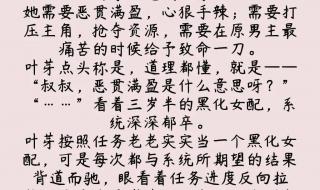 她需要恶贯满盈，心狠手辣；需要打
压主角，抢夺资源，需要在原男主最
痛苦的时候给予致命一刀。
叶芽点头称是，道理都懂，就是——
“叔叔，恶贯满盈是什么意思呀？”
“……”看着三岁半的黑化女配，系
统深深郁卒。
叶芽按照任务老老实实当一个黑化女
配，可是每次都与系统所期望的结果
背道而驰，眼看着任务进度反向拉